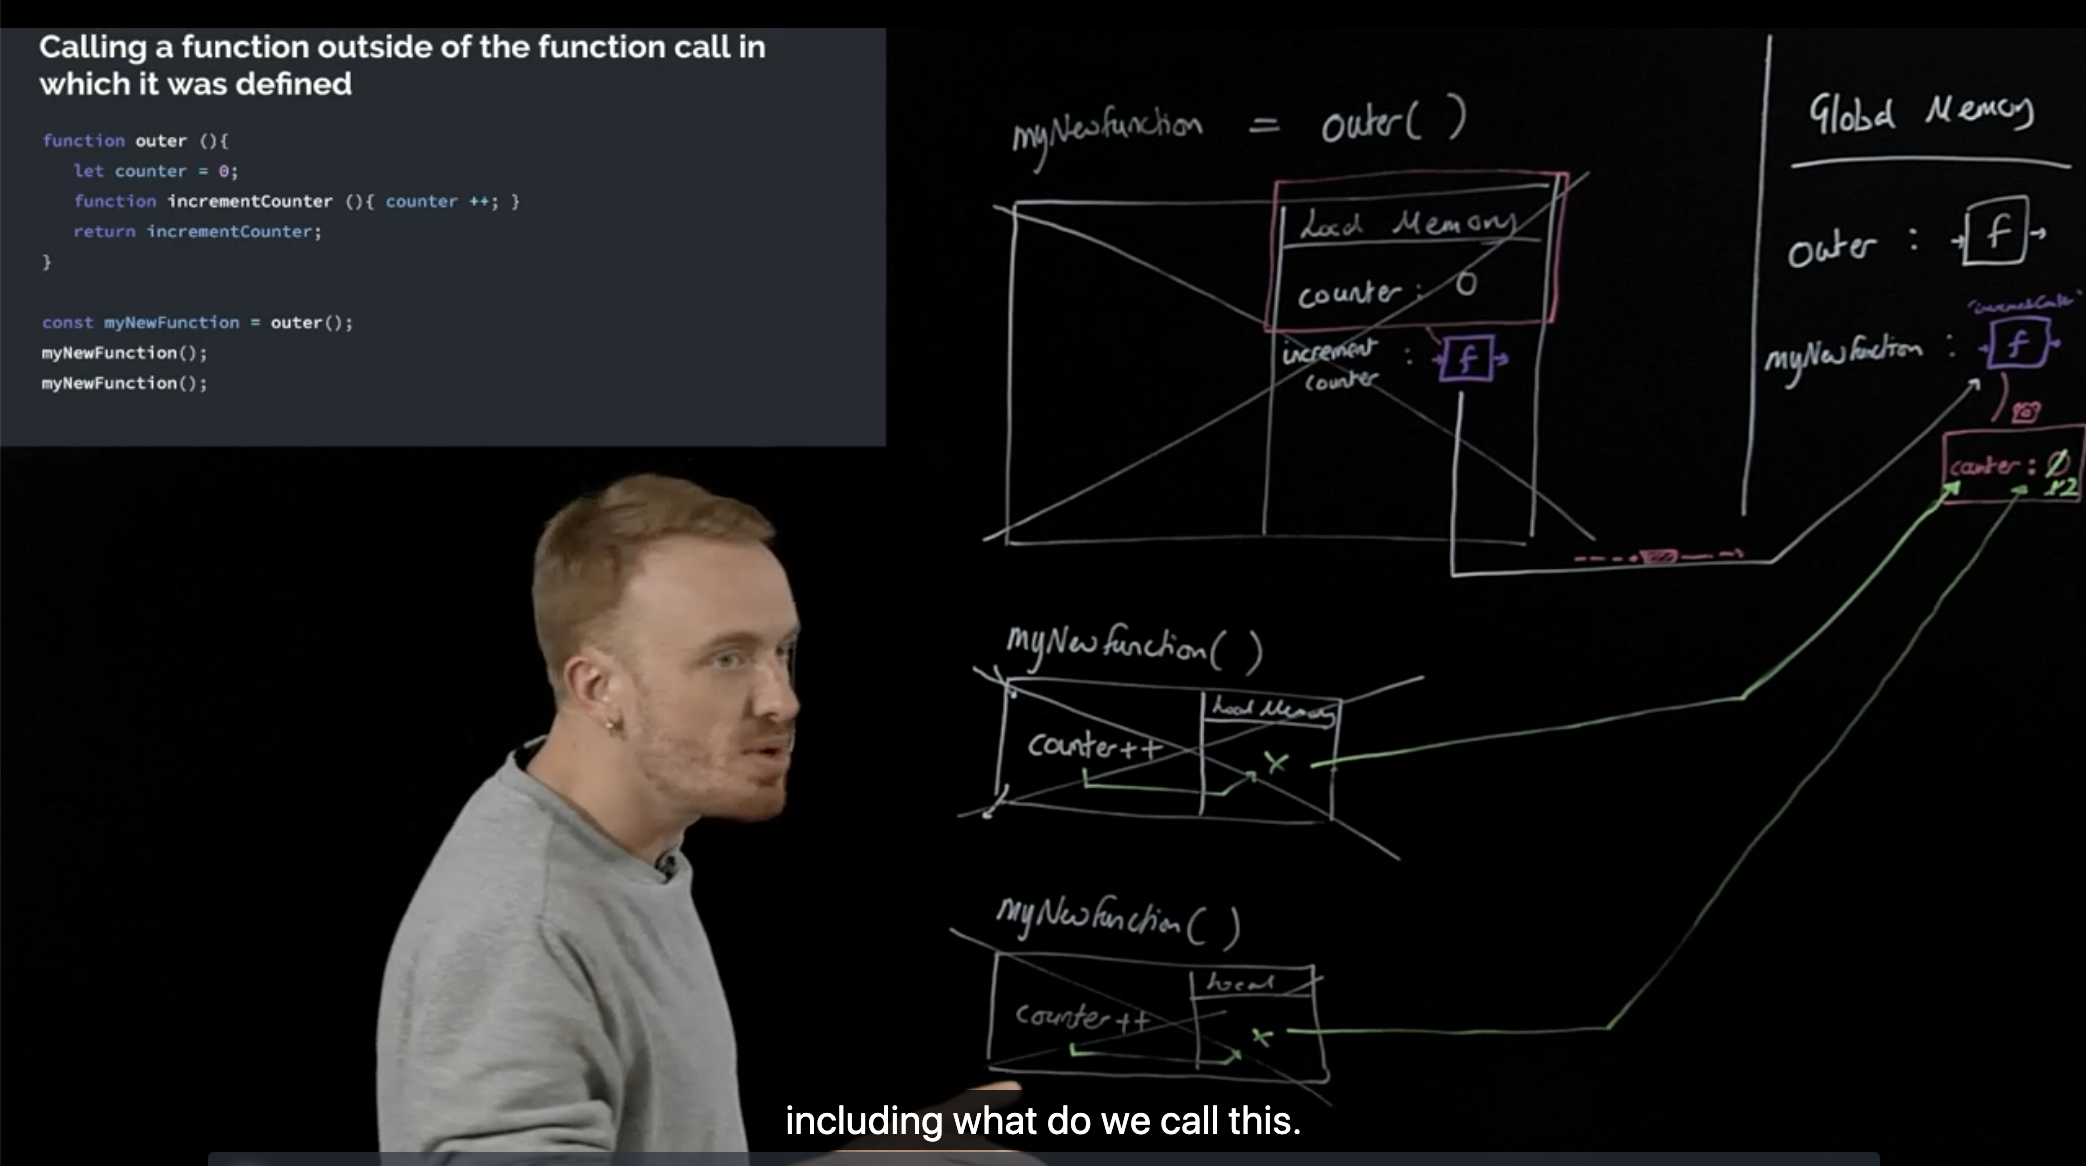 Calling a function outside of the function call in
which it was defined
function outer (){
let counter = 0;
function incrementCounter (){ counter ++; }
return incrementCounter;
}
const myNewFunction = outer();
myNewFunction();
myNewFunction();
myNewFunction = outer( )
Local Memory
counter : 0
increment : f
counter
Global Memory
outer : f
"incrementCounter"
myNewFunction : f
counter : 0
1 2
myNewFunction( )
Local Memory
counter++
x
myNewFunction( )
Local
counter++
x
including what do we call this.